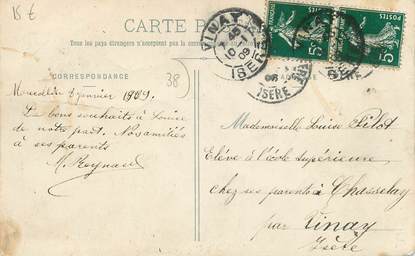 15 €
CARTE P
Tous les pays étrangers n'acceptent pas la corres
CORRESPONDANCE
38
janvier 1909.
Les bons souhaits à Louise
de notre part. Nos amitiés
à ses parents
M. Reynaud
VINAY
ISÈRE
POSTES
5c
Mademoiselle Louise Pilot
Elève à l'école supérieure
chez ses parents à Chasselay
par Vinay
Isère